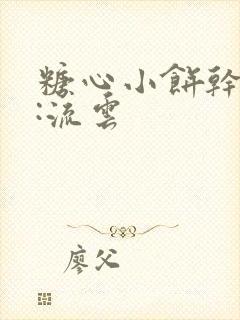 糖心小餅幹
:流雲
廖父